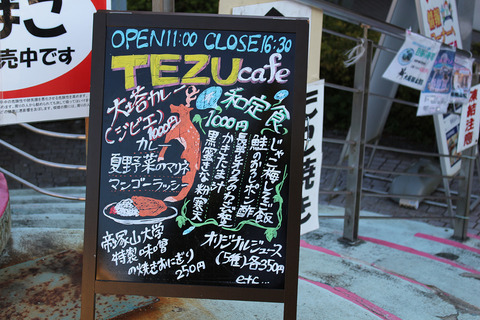 OPEN 11:00 CLOSE 16:30
TEZU cafe
大塔カレー
(ジビエ)
1000円
カレー
夏野菜のマリネ
マンゴーラッシー
和定食
1000円
じゃこ梅しそ飯
鮭のおろしポン酢
かきたま汁
黒蜜きな粉寒天
帝塚山大学
特製味噌
の焼きおにぎり
250円
オリジナルジュース
(5種)各350円
etc...
売中です